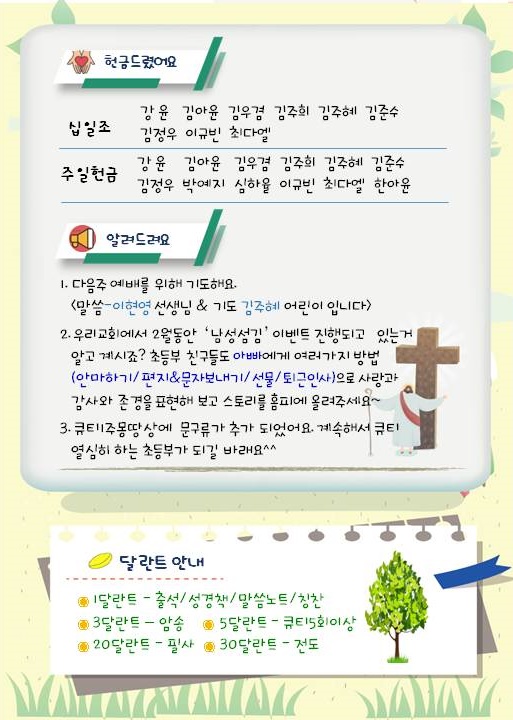 헌금드렸어요
십일조
강 윤 김아윤 김우겸 김주희 김주혜 김준수
김정우 이규빈 최다엘
주일헌금
강 윤 김아윤 김우겸 김주희 김주혜 김준수
김정우 박예지 심하율 이규빈 최다엘 한아윤
알려드려요
1. 다음주 예배를 위해 기도해요.
<말씀-이현영 선생님 & 기도 김주혜 어린이 입니다>
2. 우리교회에서 2월동안 ‘남성섬김’ 이벤트 진행되고 있는거
알고 계시죠? 초등부 친구들도 아빠에게 여러가지 방법
(안마하기/편지&문자보내기/선물/퇴근인사)으로 사랑과
감사와 존경을 표현해 보고 스토리를 홈피에 올려주세요~
3. 큐티1주몽땅상에 문구류가 추가 되었어요. 계속해서 큐티
열심히 하는 초등부가 되길 바래요^^
달란트 안내
1달란트 - 출석/성경책/말씀노트/칭찬
3달란트 - 암송 5달란트 - 큐티5회이상
20달란트 - 필사 30달란트 - 전도